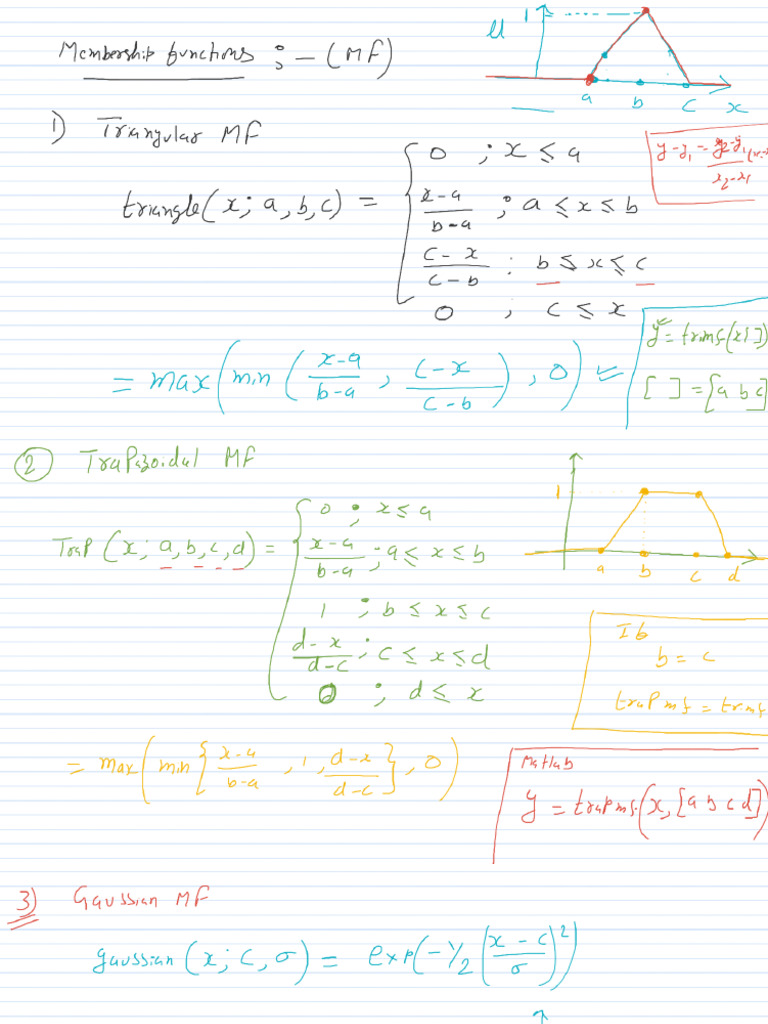 Membership functions :- (MF)
μ 1
a b c x
1) Triangular MF
triangle(x; a, b, c) =
0 ; x ≤ a
(x-a)/(b-a) ; a ≤ x ≤ b
(c-x)/(c-b) ; b ≤ x ≤ c
0 ; c ≤ x
y-y₁ = (y₂-y₁)/(x₂-x₁)
= max(min((x-a)/(b-a), (c-x)/(c-b)), 0)
y = trimf(x, [ ])
[ ] = [a b c]
2 Trapazoidal MF
1
a b c d
Trap (x; a, b, c, d) =
0 ; x ≤ a
(x-a)/(b-a) ; a ≤ x ≤ b
1 ; b ≤ x ≤ c
(d-x)/(d-c) ; c ≤ x ≤ d
0 ; d ≤ x
If
b = c
trapmf = trimf
= max(min{(x-a)/(b-a), 1, (d-x)/(d-c)}, 0)
Matlab
y = trapmf(x, [a b c d])
3) Gaussian MF
gaussian(x; c, σ) = exp(-1/2 ((x-c)/σ)²)